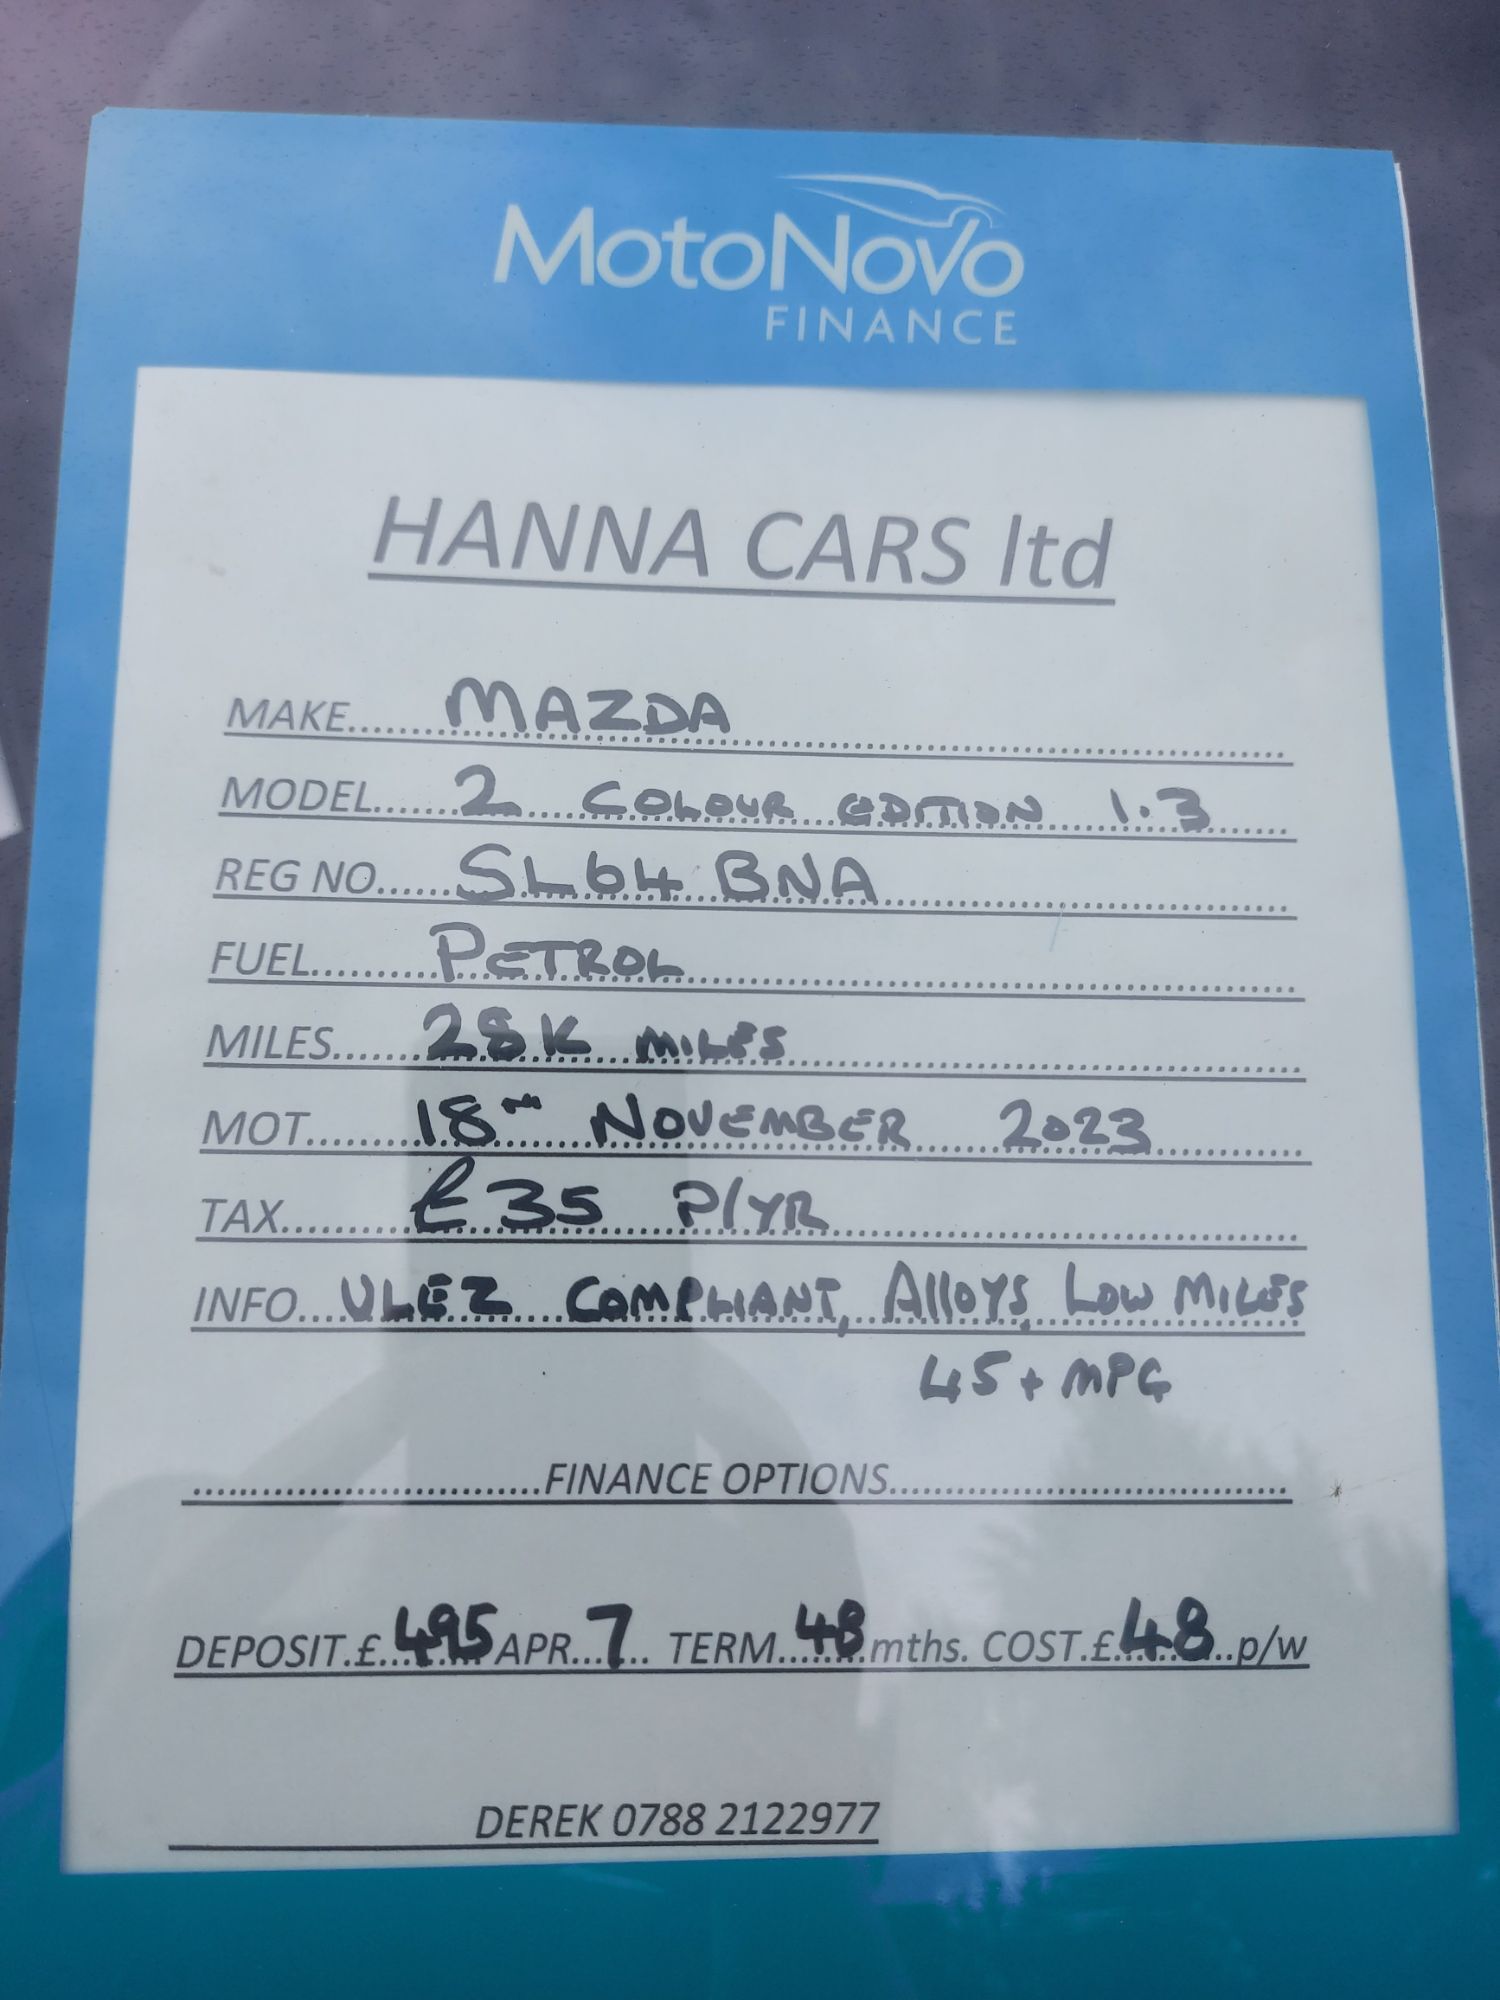 MotoNovo
FINANCE
HANNA CARS ltd
MAKE......MAZDA
MODEL......2 COLOUR EDITION 1.3
REG NO......SL64 BNA
FUEL.........PETROL
MILES.......28K MILES
MOT.........18TH NOVEMBER 2023
TAX..........£35 P/YR
INFO...ULEZ COMPLIANT, Alloys, Low MILES
45+ MPG
FINANCE OPTIONS
DEPOSIT.£.495 APR...7... TERM...48 mths. COST.£.48..p/w
DEREK 0788 2122977